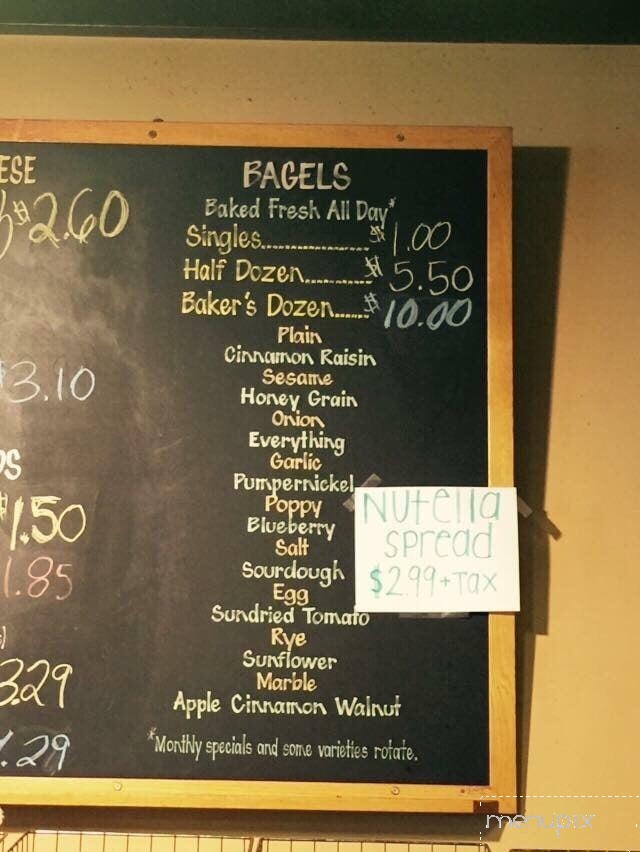 ESE
$2.60
3.10
DS
$1.50
1.85
3.29
.29
BAGELS
Baked Fresh All Day*
Singles................... $1.00
Half Dozen............ $5.50
Baker's Dozen...... $10.00
Plain
Cinnamon Raisin
Sesame
Honey Grain
Onion
Everything
Garlic
Pumpernickel
Poppy
Blueberry
Salt
Sourdough
Egg
Sundried Tomato
Rye
Sunflower
Marble
Apple Cinnamon Walnut
*Monthly specials and some varieties rotate.
Nutella
spread
$2.99+Tax
menupix